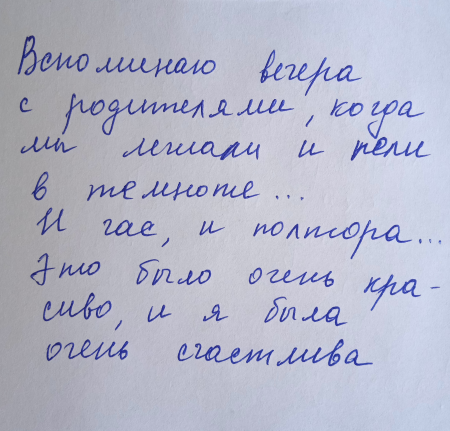 Вспоминаю вечера
с родителями, когда
мы лежали и пели
в темноте...
И час, и полтора...
Это было очень кра-
сиво, и я была
очень счастлива